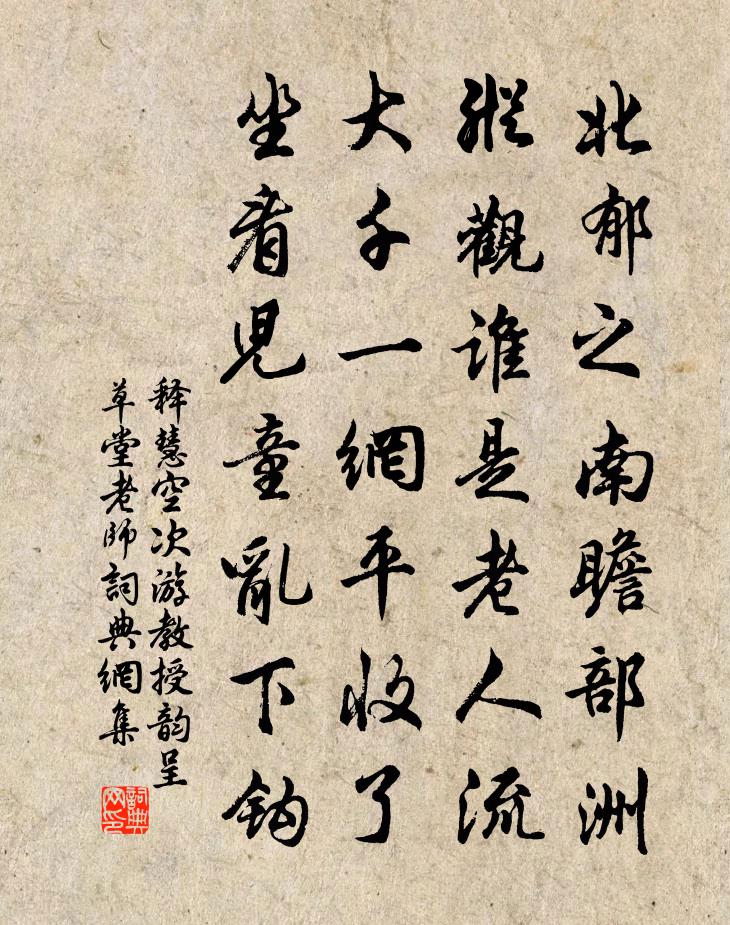 北郁之南瞻部洲
縱觀谁是老人流
大千一網平收了
坐看児童亂下钩
释慧空次游教授韵呈
草堂老师詞典網集
詞典
网印